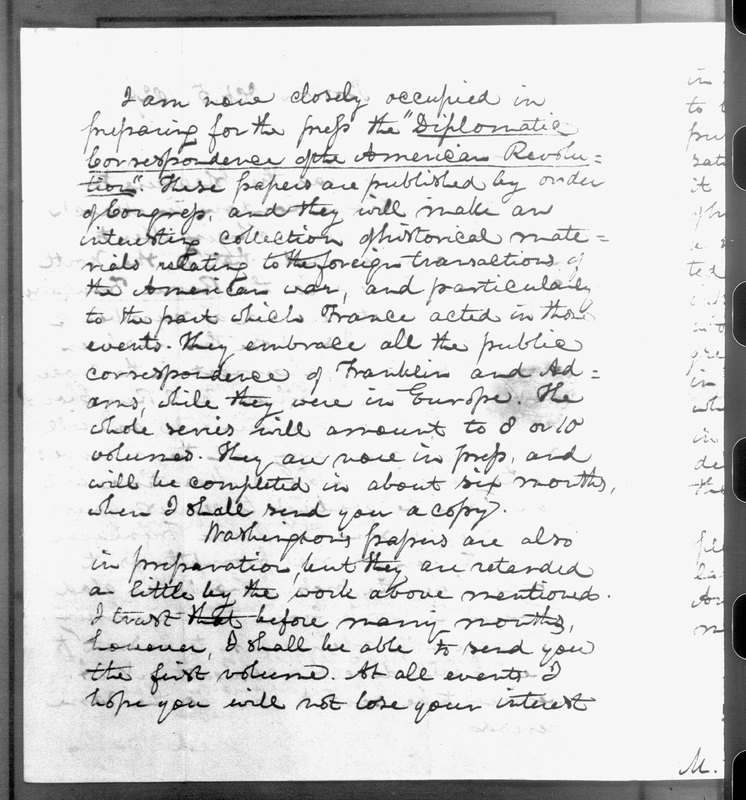 I am now closely occupied in
preparing for the press the "Diplomatic
Correspondence of the American Revolu=
tion". These papers are published by order
of Congress, and they will make an
interesting collection of historical mate=
rials relating to the foreign transactions of
the American war, and particularly
to the part which France acted in those
events. They embrace all the public
correspondence of Franklin and Ad=
ams, while they were in Europe. The
whole series will amount to 8 or 10
volumes. They are now in press, and
will be completed in about six months,
when I shall send you a copy.
Washington's papers are also
in preparation, but they are retarded
a little by the work above mentioned.
I trust that before many months,
however, I shall be able to send you
the first volume. At all events I
hope you will not lose your interest
in
to
it
ted
in
in
the
M.